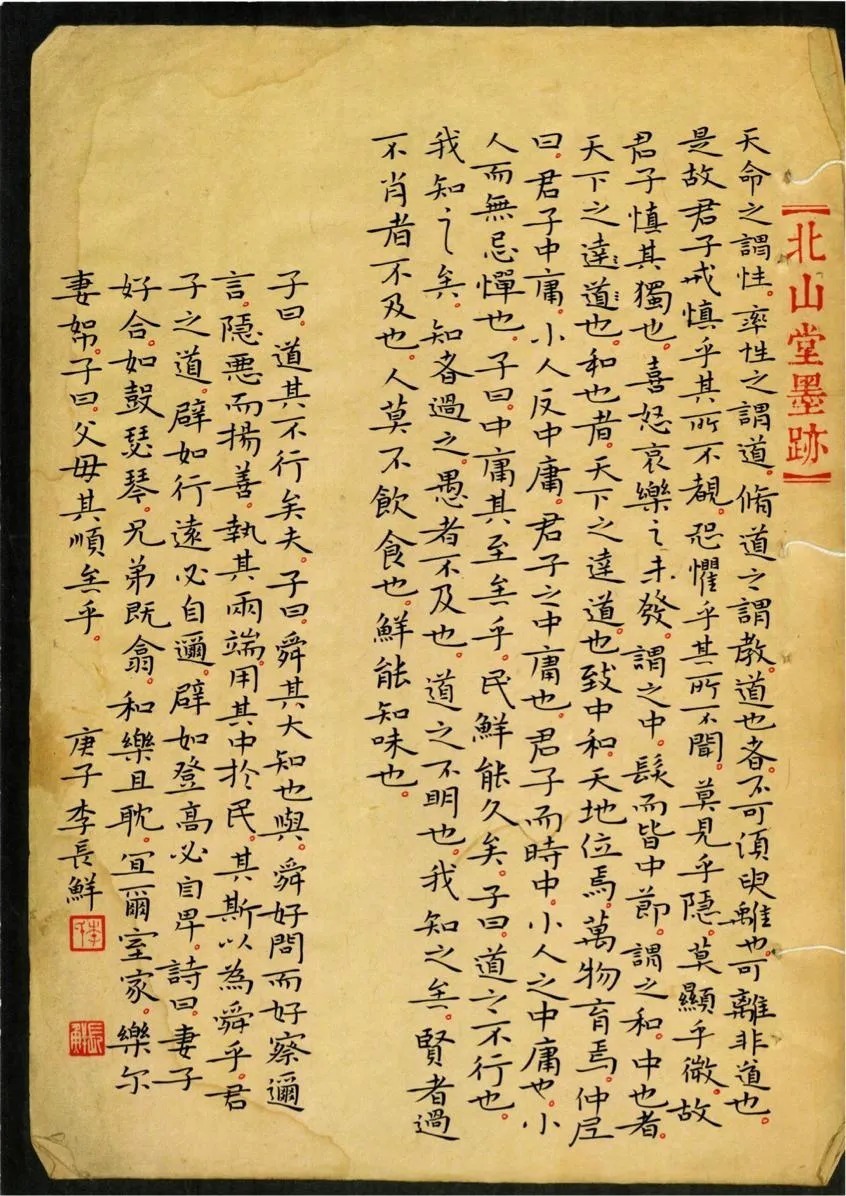 【北山堂墨跡】
天命之謂性。率性之謂道。脩道之謂教。道也者。不可須臾離也。可離非道也。
是故君子戒慎乎其所不覩。恐懼乎其所不聞。莫見乎隱。莫顯乎微。故
君子慎其獨也。喜怒哀樂之未發。謂之中。髮而皆中節。謂之和。中也者。
天下之達道也。和也者。天下之達道也。致中和。天地位焉。萬物育焉。仲尼
曰。君子中庸。小人反中庸。君子之中庸也。君子而時中。小人之中庸也。小
人而無忌憚也。子曰。中庸其至矣乎。民鮮能久矣。子曰。道之不行也。
我知之矣。知者過之。愚者不及也。道之不明也。我知之矣。賢者過
不肖者不及也。人莫不飲食也。鮮能知味也。
子曰。道其不行矣夫。子曰。舜其大知也與。舜好問而好察邇
言。隱悪而揚善。執其兩端。用其中於民。其斯以為舜乎。君
子之道。辟如行遠必自邇。辟如登高必自卑。詩曰。妻子
好合。如鼓瑟琴。兄弟既翕。和樂且耽。宜爾室家。樂尔
妻帑。子曰。父母其順矣乎。 庚子李長鮮